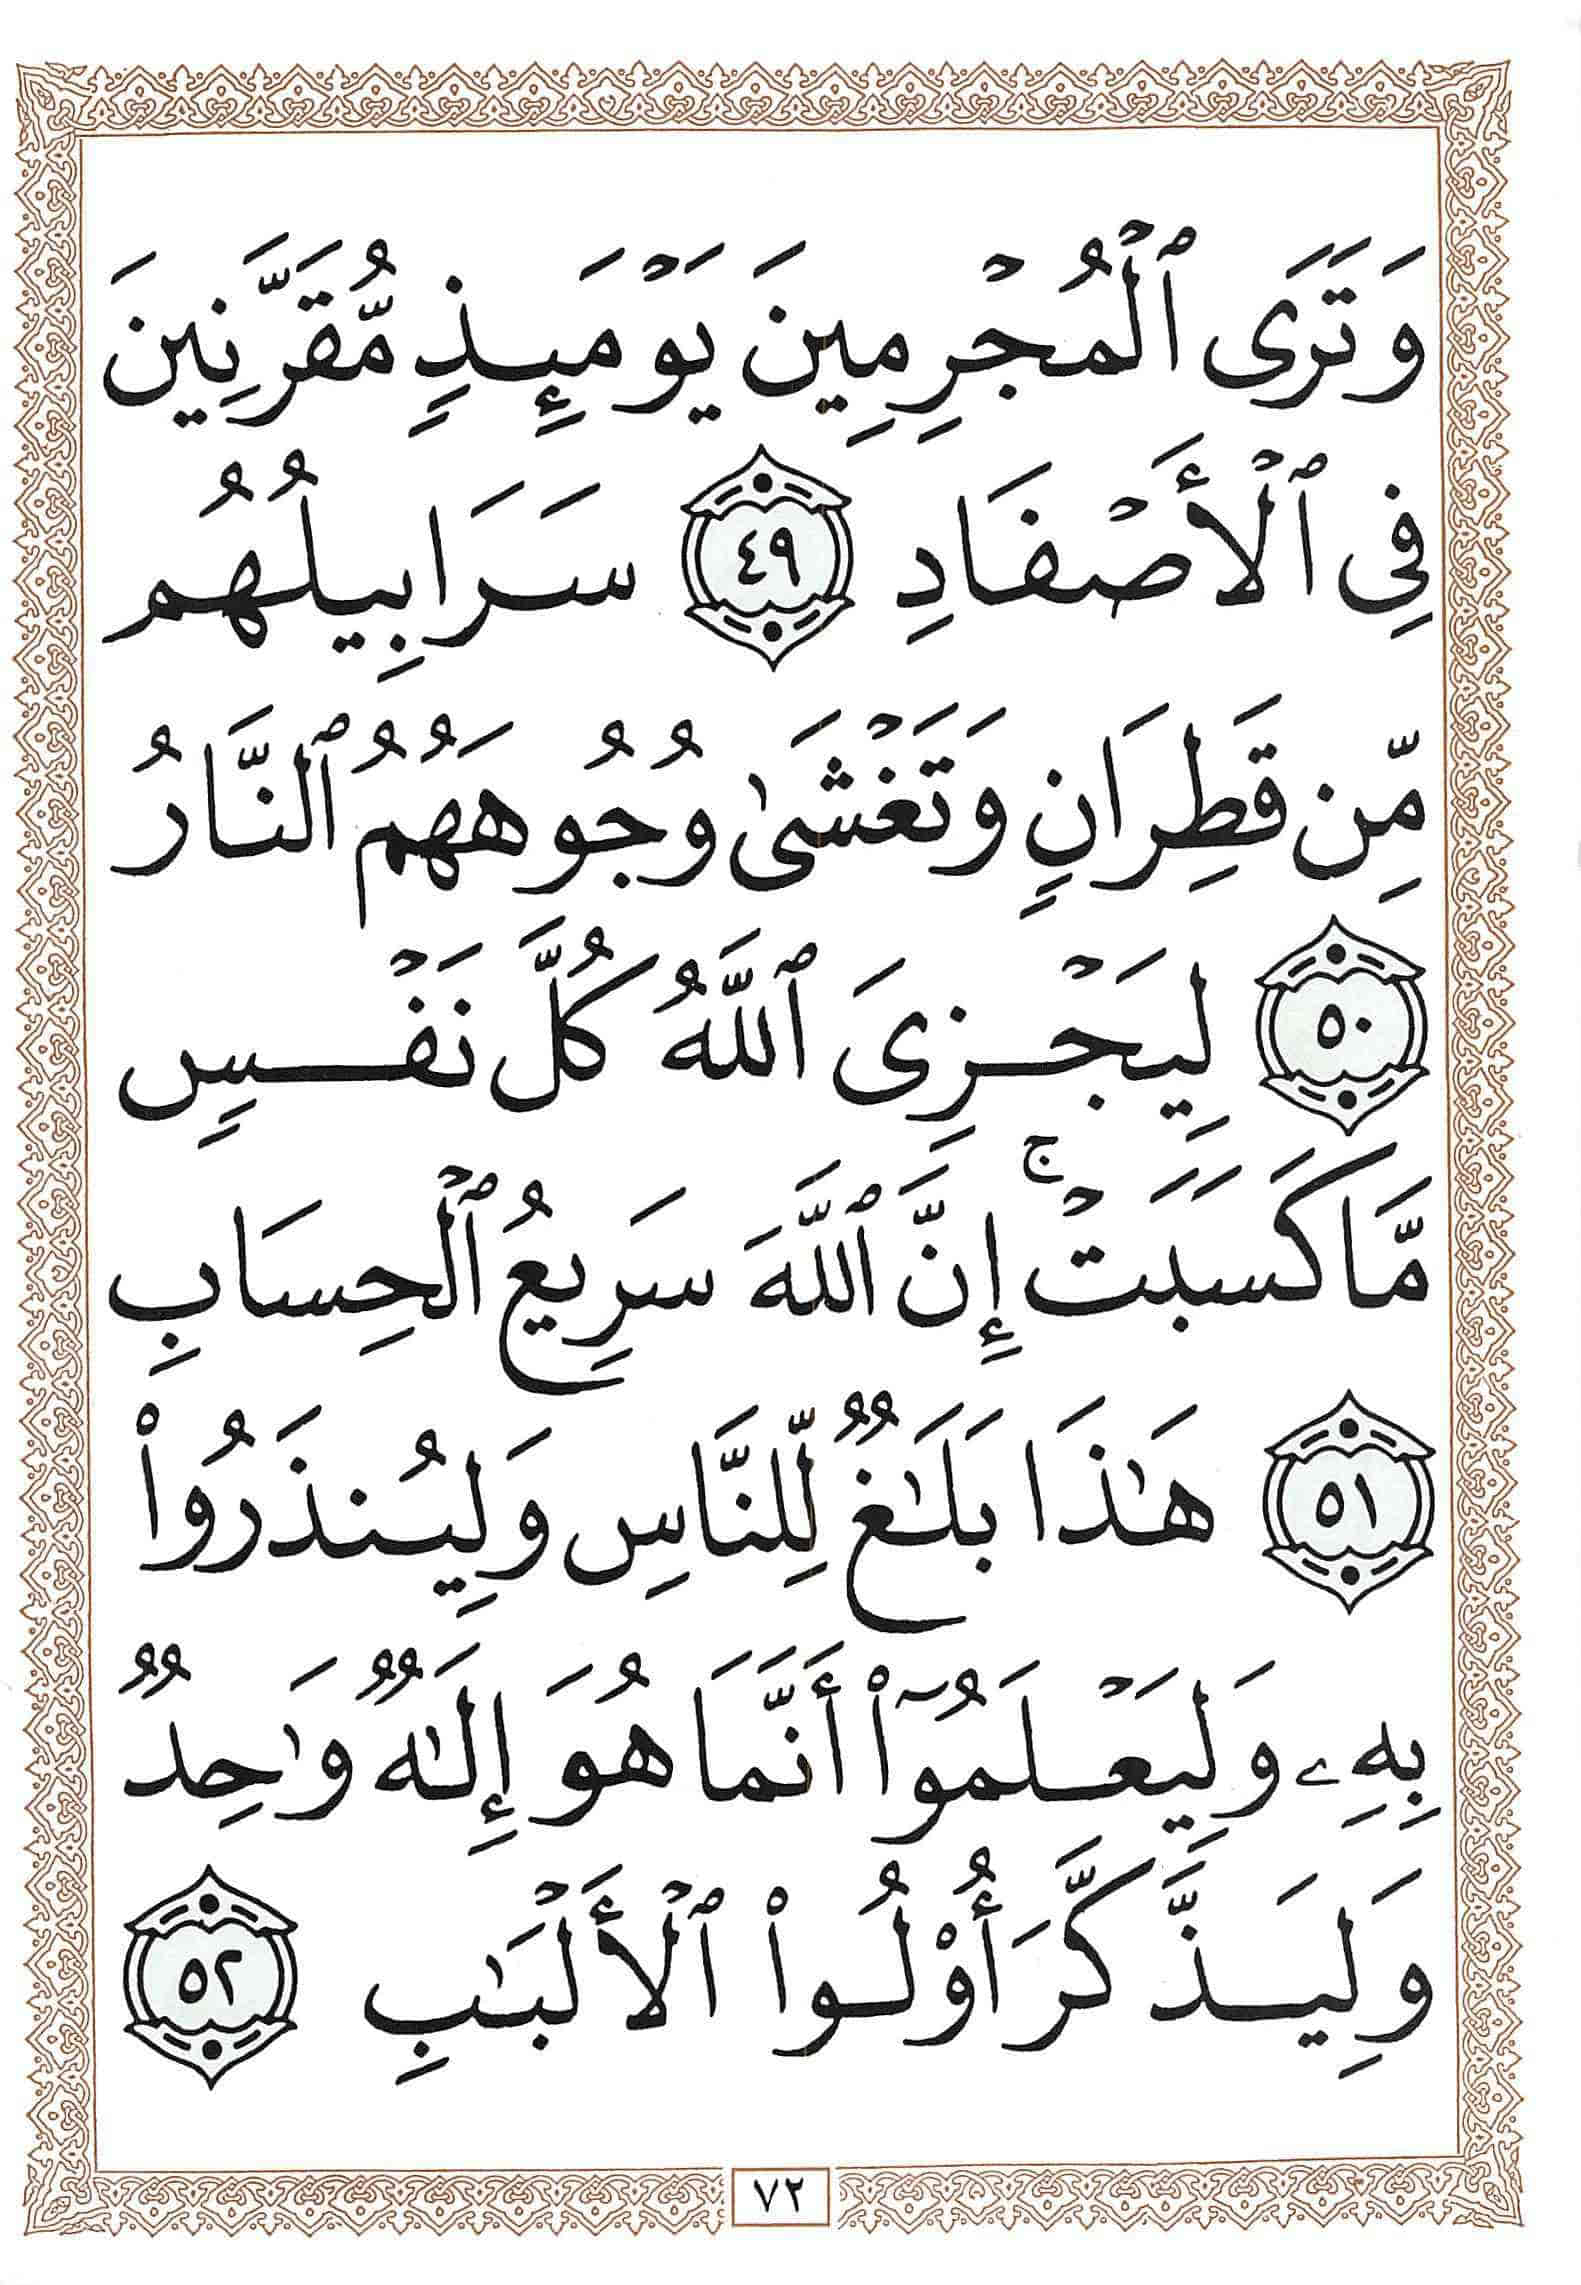 وَتَرَى ٱلْمُجْرِمِينَ يَوْمَئِذٍ مُّقَرَّنِينَ
فِى ٱلْأَصْفَادِ ٤٩ سَرَابِيلُهُم
مِّن قَطِرَانٍ وَتَغْشَىٰ وُجُوهَهُمُ ٱلنَّارُ
٥٠ لِيَجْزِىَ ٱللَّهُ كُلَّ نَفْسٍ
مَّا كَسَبَتْ ۚ إِنَّ ٱللَّهَ سَرِيعُ ٱلْحِسَابِ
٥١ هَٰذَا بَلَٰغٌ لِّلنَّاسِ وَلِيُنذَرُوا۟
بِهِۦ وَلِيَعْلَمُوٓا۟ أَنَّمَا هُوَ إِلَٰهٌ وَٰحِدٌ
وَلِيَذَّكَّرَ أُو۟لُوا۟ ٱلْأَلْبَٰبِ ٥٢
٧٢